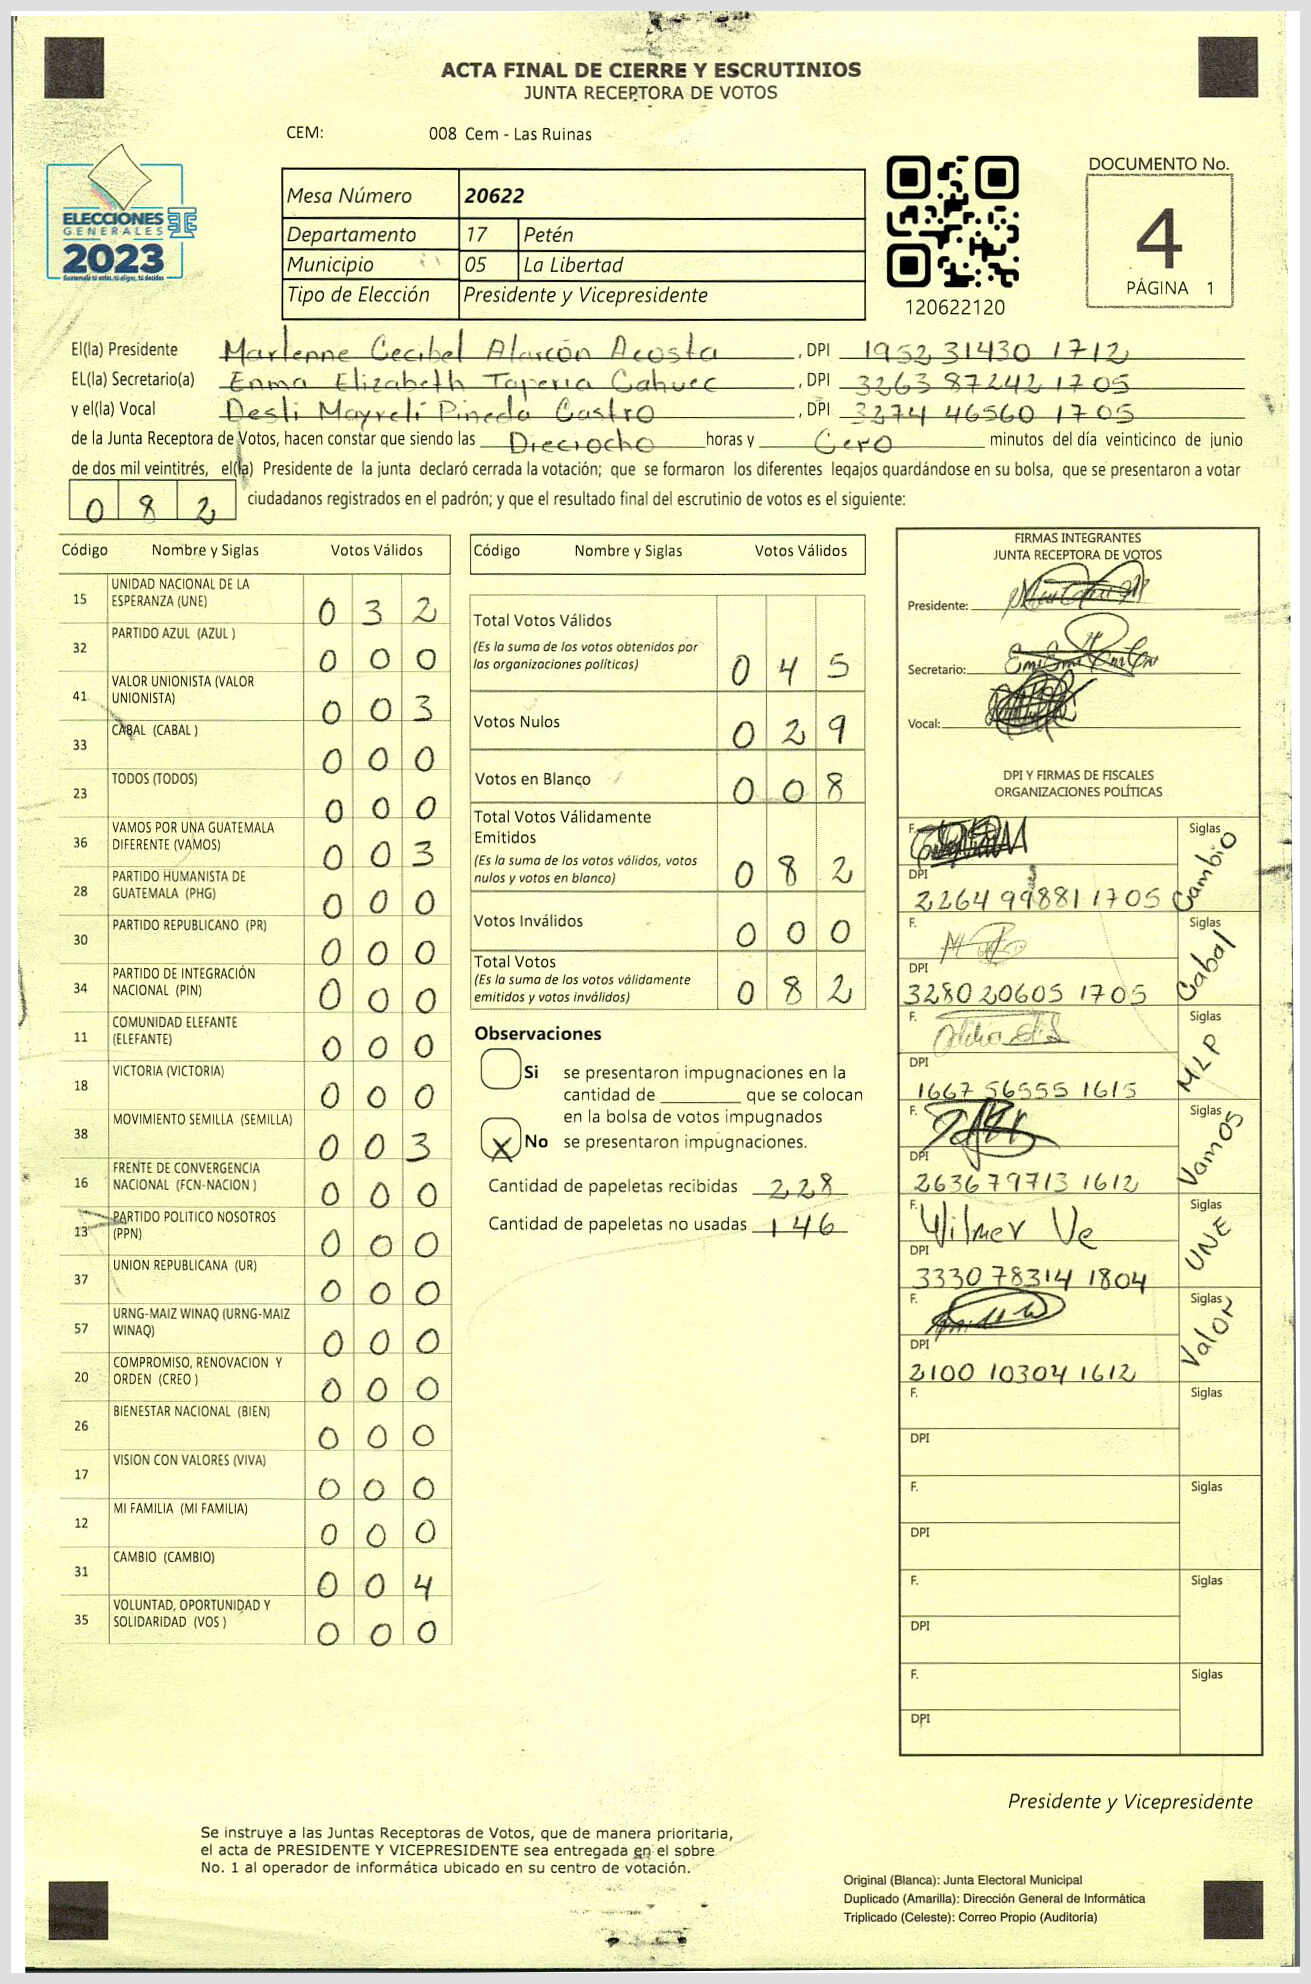 ACTA FINAL DE CIERRE Y ESCRUTINIOS
JUNTA RECEPTORA DE VOTOS
CEM: 008 Cem - Las Ruinas
ELECCIONES
GENERALES
2023
Mesa Número 20622
Departamento 17 Petén
Municipio 05 La Libertad
Tipo de Elección Presidente y Vicepresidente
120622120
DOCUMENTO No.
4
PÁGINA 1
El(la) Presidente Marlenne Cecibel Alarcón Acosta, DPI 1952 31430 1712
EL(la) Secretario(a) Enma Elizabeth Taperia Cahuec, DPI 3263 87242 1705
y el(la) Vocal Desli Mayreli Pineda Castro, DPI 3274 46560 1705
de la Junta Receptora de Votos, hacen constar que siendo las Dieciocho horas y Cero minutos del día veinticinco de junio
de dos mil veintitrés, el(la) Presidente de la junta declaró cerrada la votación; que se formaron los diferentes legajos guardándose en su bolsa, que se presentaron a votar
082 ciudadanos registrados en el padrón; y que el resultado final del escrutinio de votos es el siguiente:
Código Nombre y Siglas Votos Válidos
15 UNIDAD NACIONAL DE LA ESPERANZA (UNE) 0 3 2
32 PARTIDO AZUL (AZUL ) 0 0 0
41 VALOR UNIONISTA (VALOR UNIONISTA) 0 0 3
33 CABAL (CABAL ) 0 0 0
23 TODOS (TODOS) 0 0 0
36 VAMOS POR UNA GUATEMALA DIFERENTE (VAMOS) 0 0 3
28 PARTIDO HUMANISTA DE GUATEMALA (PHG) 0 0 0
30 PARTIDO REPUBLICANO (PR) 0 0 0
34 PARTIDO DE INTEGRACIÓN NACIONAL (PIN) 0 0 0
11 COMUNIDAD ELEFANTE (ELEFANTE) 0 0 0
18 VICTORIA (VICTORIA) 0 0 0
38 MOVIMIENTO SEMILLA (SEMILLA) 0 0 3
16 FRENTE DE CONVERGENCIA NACIONAL (FCN-NACION ) 0 0 0
13 PARTIDO POLITICO NOSOTROS (PPN) 0 0 0
37 UNION REPUBLICANA (UR) 0 0 0
57 URNG-MAIZ WINAQ (URNG-MAIZ WINAQ) 0 0 0
20 COMPROMISO, RENOVACION Y ORDEN (CREO ) 0 0 0
26 BIENESTAR NACIONAL (BIEN) 0 0 0
17 VISION CON VALORES (VIVA) 0 0 0
12 MI FAMILIA (MI FAMILIA) 0 0 0
31 CAMBIO (CAMBIO) 0 0 4
35 VOLUNTAD, OPORTUNIDAD Y SOLIDARIDAD (VOS ) 0 0 0
Código Nombre y Siglas Votos Válidos
Total Votos Válidos
(Es la suma de los votos obtenidos por
las organizaciones políticas) 0 4 5
Votos Nulos 0 2 9
Votos en Blanco 0 0 8
Total Votos Válidamente
Emitidos
(Es la suma de los votos válidos, votos
nulos y votos en blanco) 0 8 2
Votos Inválidos 0 0 0
Total Votos
(Es la suma de los votos válidamente
emitidos y votos inválidos) 0 8 2
Observaciones
Si se presentaron impugnaciones en la
cantidad de ________ que se colocan
en la bolsa de votos impugnados
X No se presentaron impugnaciones.
Cantidad de papeletas recibidas 228
Cantidad de papeletas no usadas 146
FIRMAS INTEGRANTES
JUNTA RECEPTORA DE VOTOS
Presidente:
Secretario:
Vocal:
DPI Y FIRMAS DE FISCALES
ORGANIZACIONES POLÍTICAS
F. Siglas Cambio
DPI 2264 99881 1705
F. Siglas Cabal
DPI 3280 20605 1705
F. Siglas MLP
DPI 1667 56555 1615
F. Siglas Vamos
DPI 2636 79713 1612
F. Wilmer Ve Siglas UNE
DPI 3330 78314 1804
F. Siglas Valor
DPI 2100 10304 1612
F. Siglas
DPI
F. Siglas
DPI
F. Siglas
DPI
F. Siglas
DPI
Presidente y Vicepresidente
Se instruye a las Juntas Receptoras de Votos, que de manera prioritaria,
el acta de PRESIDENTE Y VICEPRESIDENTE sea entregada en el sobre
No. 1 al operador de informática ubicado en su centro de votación.
Original (Blanca): Junta Electoral Municipal
Duplicado (Amarilla): Dirección General de Informática
Triplicado (Celeste): Correo Propio (Auditoría)